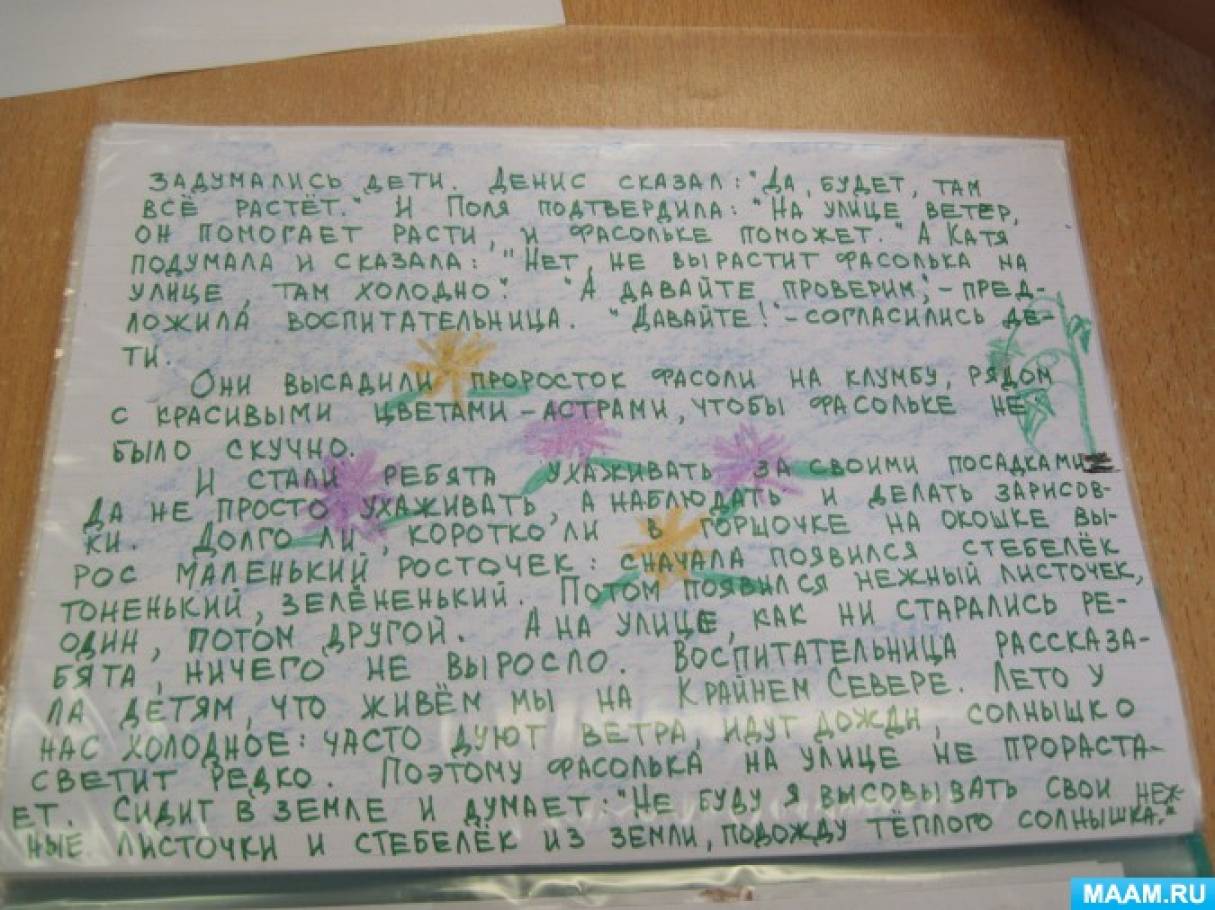 ЗАДУМАЛИСЬ ДЕТИ. ДЕНИС СКАЗАЛ: "ДА, БУДЕТ, ТАМ
ВСЁ РАСТЁТ." И ПОЛЯ ПОДТВЕРДИЛА: "НА УЛИЦЕ ВЕТЕР,
ОН ПОМОГАЕТ РАСТИ, И ФАСОЛЬКЕ ПОМОЖЕТ." А КАТЯ
ПОДУМАЛА И СКАЗАЛА: "НЕТ, НЕ ВЫРАСТИТ ФАСОЛЬКА НА
УЛИЦЕ, ТАМ ХОЛОДНО". "А ДАВАЙТЕ ПРОВЕРИМ",-ПРЕД-
ЛОЖИЛА ВОСПИТАТЕЛЬНИЦА. "ДАВАЙТЕ!"-СОГЛАСИЛИСЬ ДЕ-
ТИ.
ОНИ ВЫСАДИЛИ ПРОРОСТОК ФАСОЛИ НА КЛУМБУ, РЯДОМ
С КРАСИВЫМИ ЦВЕТАМИ-АСТРАМИ, ЧТОБЫ ФАСОЛЬКЕ НЕ
БЫЛО СКУЧНО.
И СТАЛИ РЕБЯТА УХАЖИВАТЬ ЗА СВОИМИ ПОСАДКАМИ
ДА НЕ ПРОСТО УХАЖИВАТЬ, А НАБЛЮДАТЬ И ДЕЛАТЬ ЗАРИСОВ-
КИ. ДОЛГО ЛИ, КОРОТКО ЛИ В ГОРШОЧКЕ НА ОКОШКЕ ВЫ-
РОС МАЛЕНЬКИЙ РОСТОЧЕК: СНАЧАЛА ПОЯВИЛСЯ СТЕБЕЛЁК
ТОНЕНЬКИЙ, ЗЕЛЁНЕНЬКИЙ. ПОТОМ ПОЯВИЛСЯ НЕЖНЫЙ ЛИСТОЧЕК,
ОДИН, ПОТОМ ДРУГОЙ. А НА УЛИЦЕ, КАК НИ СТАРАЛИСЬ РЕ-
БЯТА, НИЧЕГО НЕ ВЫРОСЛО. ВОСПИТАТЕЛЬНИЦА РАССКАЗА-
ЛА ДЕТЯМ, ЧТО ЖИВЁМ МЫ НА КРАЙНЕМ СЕВЕРЕ. ЛЕТО У
НАС ХОЛОДНОЕ: ЧАСТО ДУЮТ ВЕТРА, ИДУТ ДОЖДИ, СОЛНЫШКО
СВЕТИТ РЕДКО. ПОЭТОМУ ФАСОЛЬКА НА УЛИЦЕ НЕ ПРОРАСТА-
ЕТ. СИДИТ В ЗЕМЛЕ И ДУМАЕТ: "НЕ БУДУ Я ВЫСОВЫВАТЬ СВОИ НЕЖ-
НЫЕ ЛИСТОЧКИ И СТЕБЕЛЁК ИЗ ЗЕМЛИ, ПОДОЖДУ ТЁПЛОГО СОЛНЫШКА."
MAAM.RU